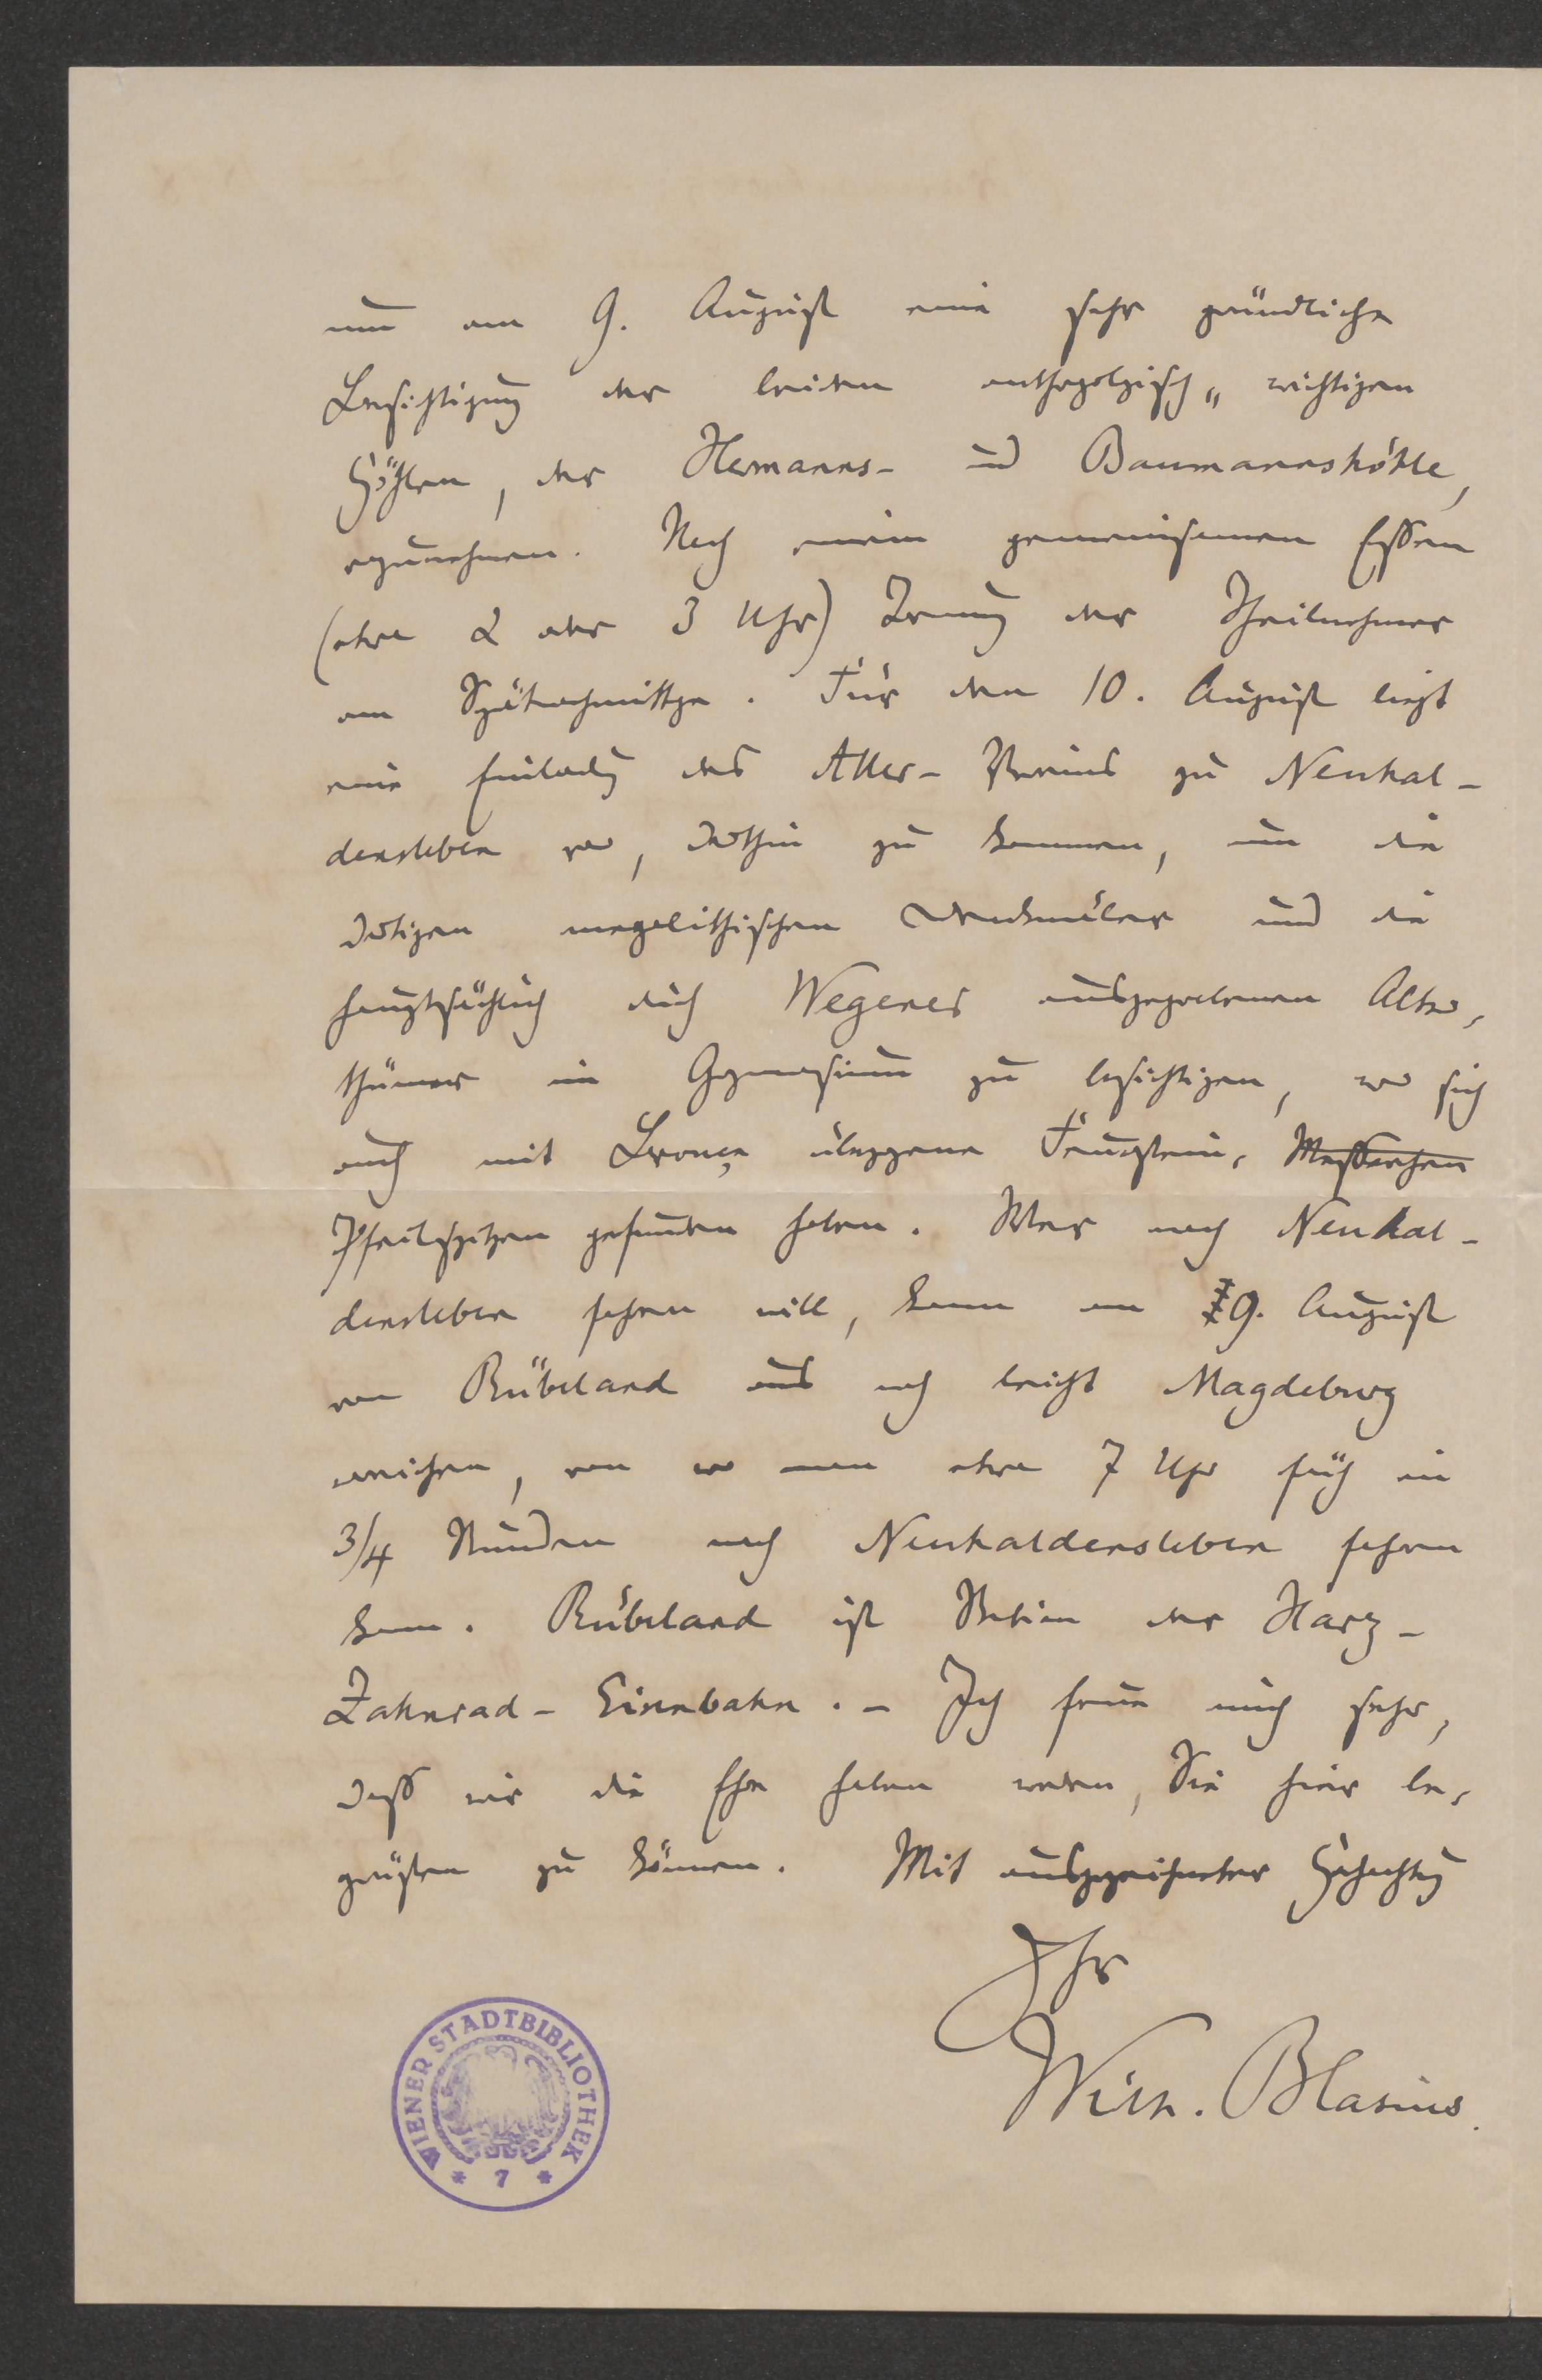 um am 9. August eine sehr gründliche
Besichtigung der beiden anthropologisch-wichtigen
Höhlen, der Hermanns- und Baumannshöhle,
vorzunehmen. Nach einem gemeinsamen Essen
(etwa 2 oder 3 Uhr) Trennung der Theilnehmer
am Spätnachmittage. Für den 10. August liegt
eine Einladung des Aller-Vereins zu Neuhal-
densleben vor, dorthin zu kommen, um die
dortigen megalithischen Denkmäler und die
hauptsächlich durch Wegener ausgegrabenen Alter-
thümer im Gymnasium zu besichtigen, wo sich
auch mit Bronce überzogene Feuerstein- Messerchen
Pfeilspitzen gefunden haben. Wer nach Neuhal-
densleben fahren will, kann am 9. August
von Rübeland aus noch leicht Magdeburg
erreichen, von wo man etwa 7 Uhr früh in
3/4 Stunden nach Neuhaldensleben fahren
kann. Rübeland ist Station der Harz-
Zahnrad-Eisenbahn. - Ich freue mich sehr,
dass wir die Ehre haben werden, Sie hier be-
grüßen zu können. Mit ausgezeichneter Hochachtung
Ihr
Wilh. Blasius.
WIENER STADTBIBLIOTHEK
* 7 *